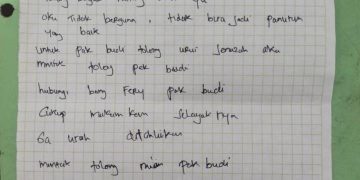 aku tidak berguna, tidak bisa jadi panutan
yang baik
untuk pak budi tolong urus jenazah aku
mintak tolong pak budi
hubungi bang Fery pak budi
Cukup makam kan selayak nya
Ga usah
mintak tolong pak budi